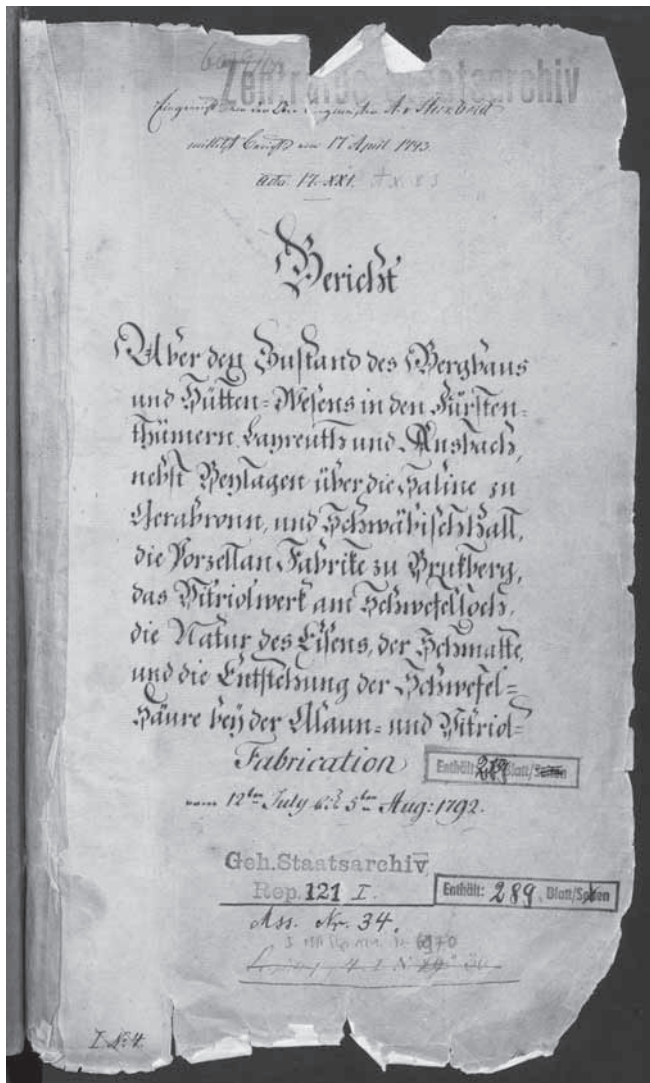 Zentrales Staatsarchiv
mittelst Bericht vom 17 April 1793.
Acta. 17. XXI.
Bericht
Über den Zustand des Bergbaus
und Hütten-Wesens in den Fürsten-
thümern Bayreuth und Ansbach,
nebst Beylagen über die Saline zu
Gerabronn, und Schwäbisch Hall,
die Porzellan Fabrike zu Brukberg,
das Vitriolwerk am Schwefelloch,
die Natur des Eisens, der Schmalte,
und die Entstehung der Schwefel-
Säure bey der Alaun- und Vitriol-
Fabrication
Enthält: Blatt/Seiten
vom 12ten July bis 5ten Aug: 1792.
Geh. Staatsarchiv
Rep. 121 I.
Enthält: 289 Blatt/Seiten
Mss. Nr. 34.
I. No 4.